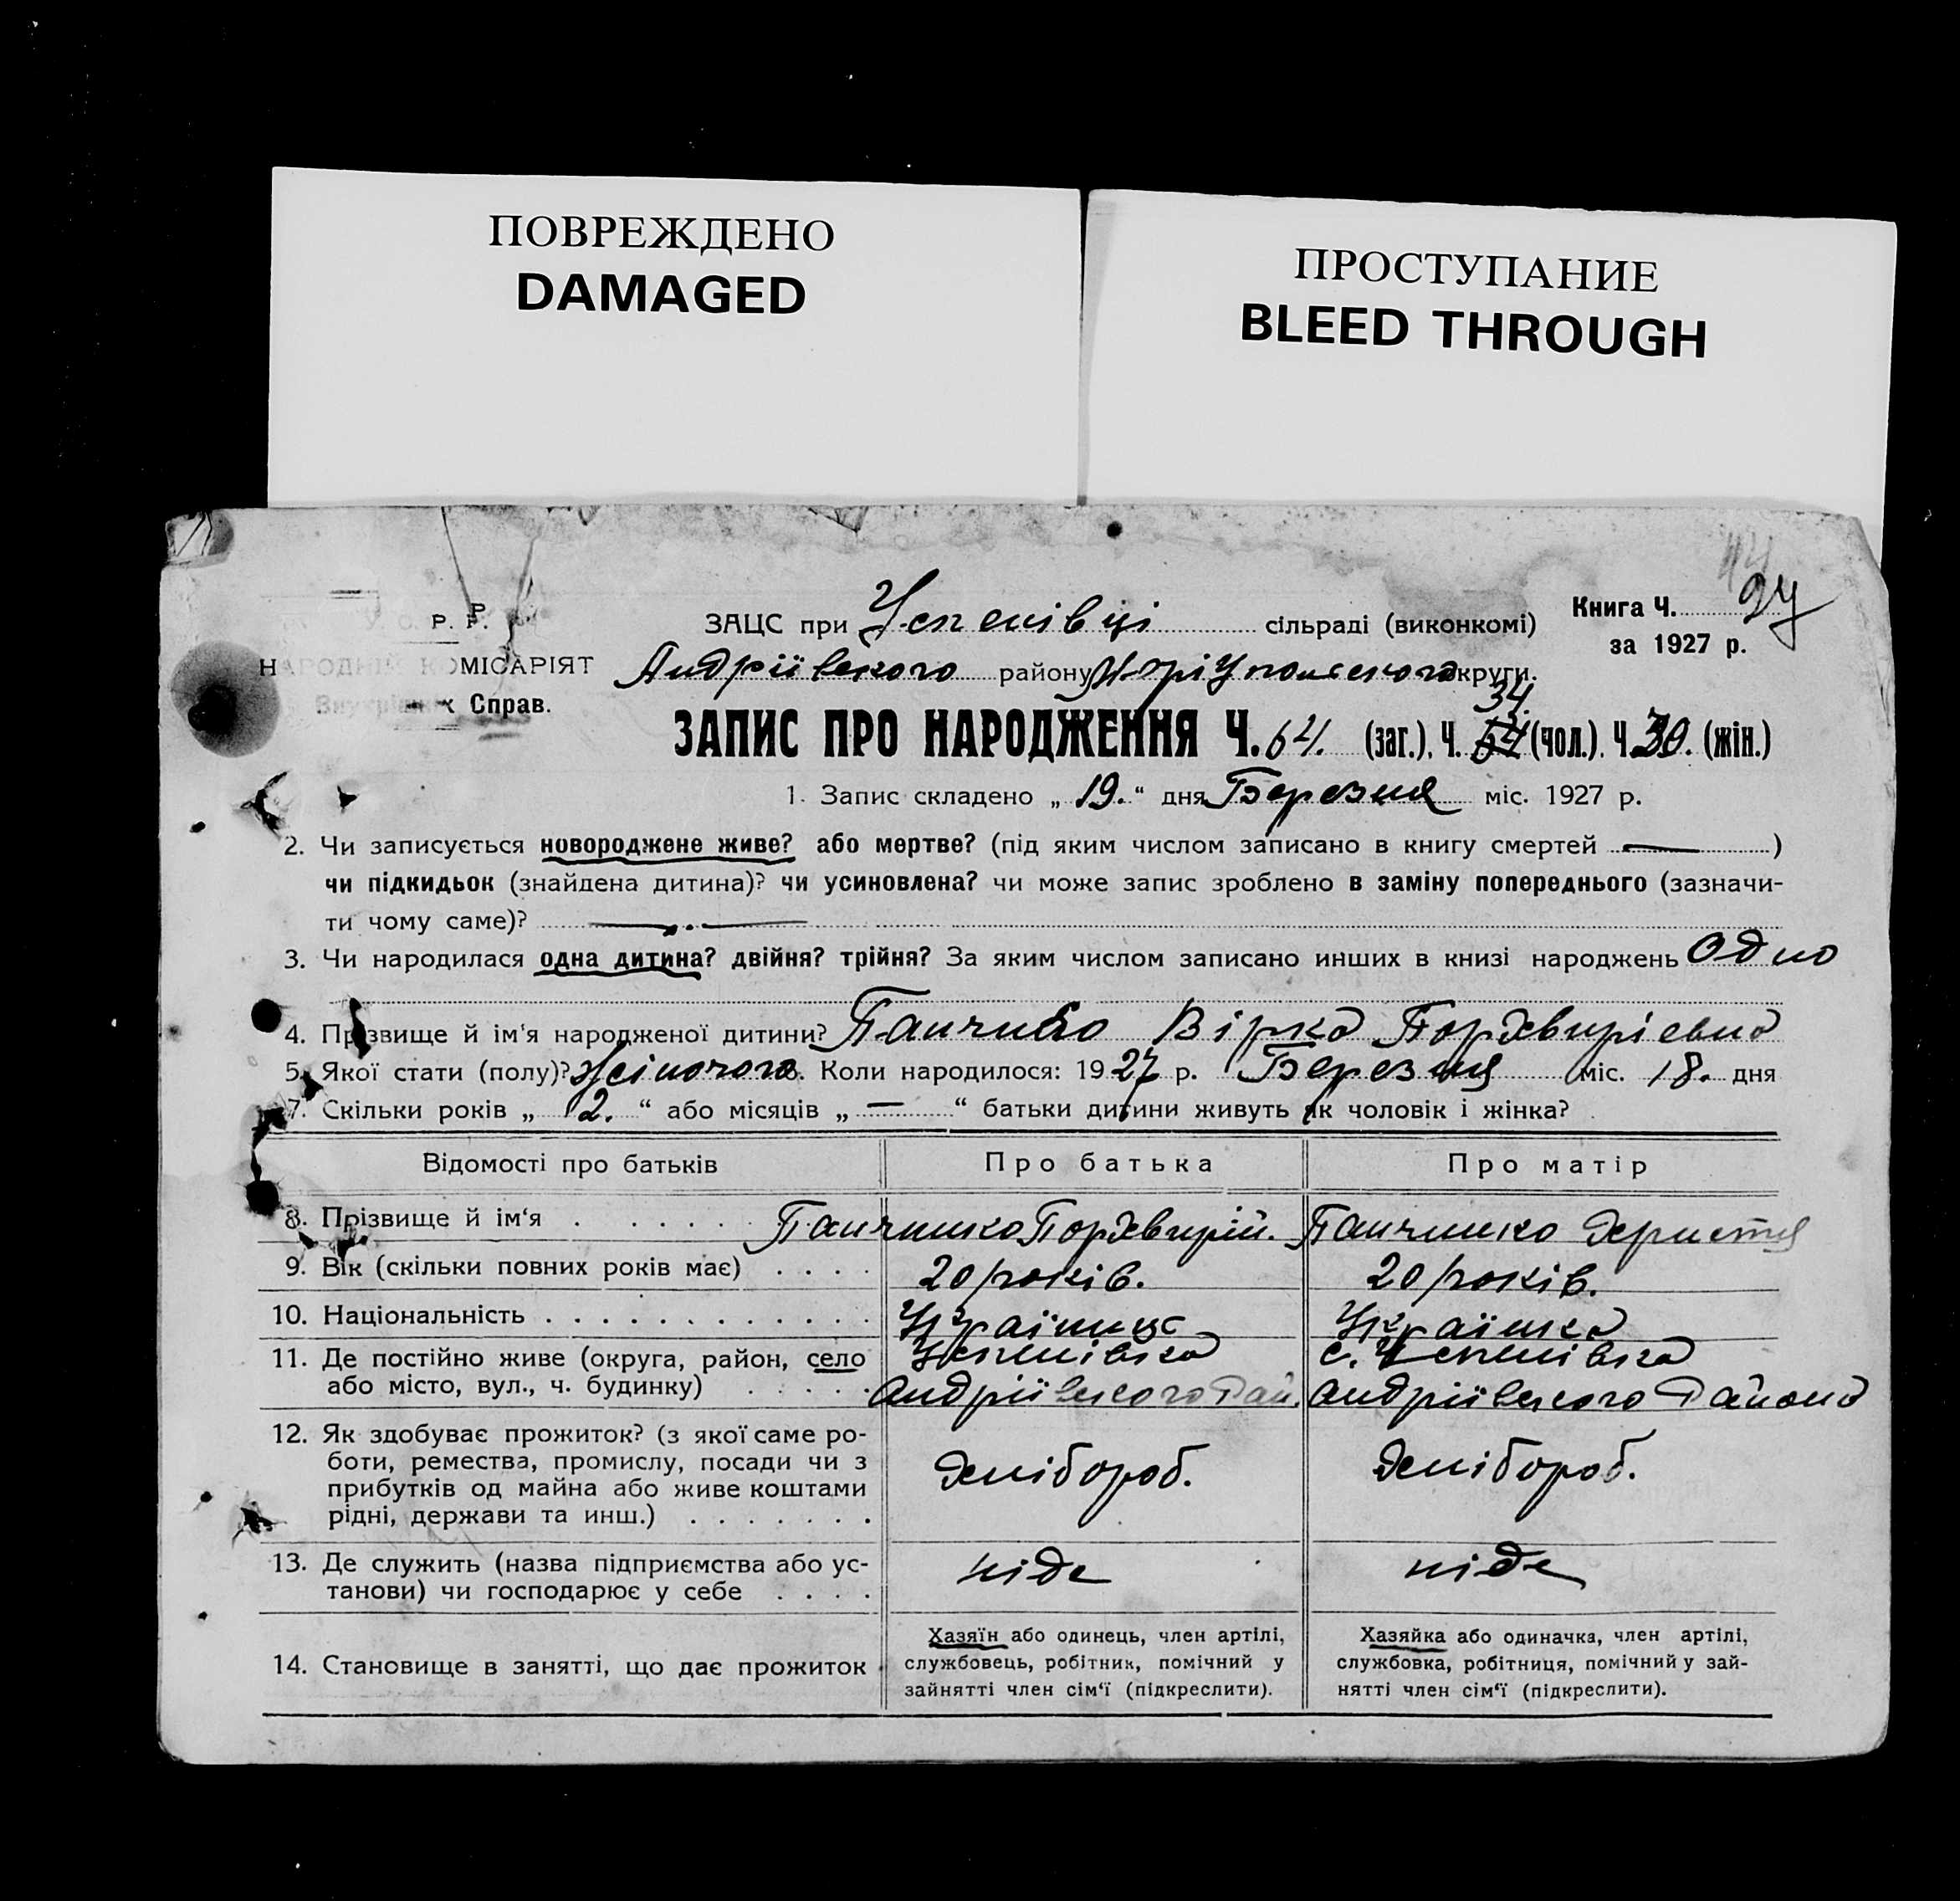 ПОВРЕЖДЕНО
DAMAGED
ПРОСТУПАНИЕ
BLEED THROUGH
У. С. Р. Р.
НАРОДНІЙ КОМІСАРІЯТ
Внутрішніх Справ.
ЗАЦС при Успенівці сільраді (виконкомі)
Андріївського району округи.
Книга Ч.
за 1927 р.
34.
ЗАПИС ПРО НАРОДЖЕННЯ Ч. 64. (заг.), Ч. (чол.). Ч. 30. (жін.)
1. Запис складено „ 19. “ дня Березня міс. 1927 р.
2. Чи записується новороджене живе? або мертве? (під яким числом записано в книгу смертей — )
чи підкидьок (знайдена дитина)? чи усиновлена? чи може запис зроблено в заміну попереднього (зазначи-
ти чому саме)? —
3. Чи народилася одна дитина? двійня? трійня? За яким числом записано инших в книзі народжень Одно
4. Прізвище й ім‘я народженої дитини? Панчнко Вірка Порхвирієвна
5. Якої стати (полу)? Жіночого 6. Коли народилося: 1927 р. Березня міс. 18. дня
7. Скільки років „ 2. “ або місяців „ — “ батьки дитини живуть як чоловік і жінка?
Відомості про батьків Про батька Про матір
8. Прізвище й ім‘я Панчишко Порхвирій. Панчишко Христя
9. Вік (скільки повних років має) 20 років. 20 років.
10. Національність Українць Українка
11. Де постійно живе (округа, район, село Успенівка с. Успенівка
або місто, вул., ч. будинку) Андріївського Рай. Андріївського Района
12. Як здобуває прожиток? (з якої саме ро-
боти, ремества, промислу, посади чи з
прибутків од майна або живе коштами
рідні, держави та инш.) Хлібороб. Хлібороб.
13. Де служить (назва підприємства або ус-
танови) чи господарює у себе ніде ніде
14. Становище в занятті, що дає прожиток
Хазяїн або одинець, член артілі,
службовець, робітник, помічний у
зайнятті член сім‘ї (підкреслити).
Хазяйка або одиначка, член артілі,
службовка, робітниця, помічний у зай-
нятті член сім‘ї (підкреслити).